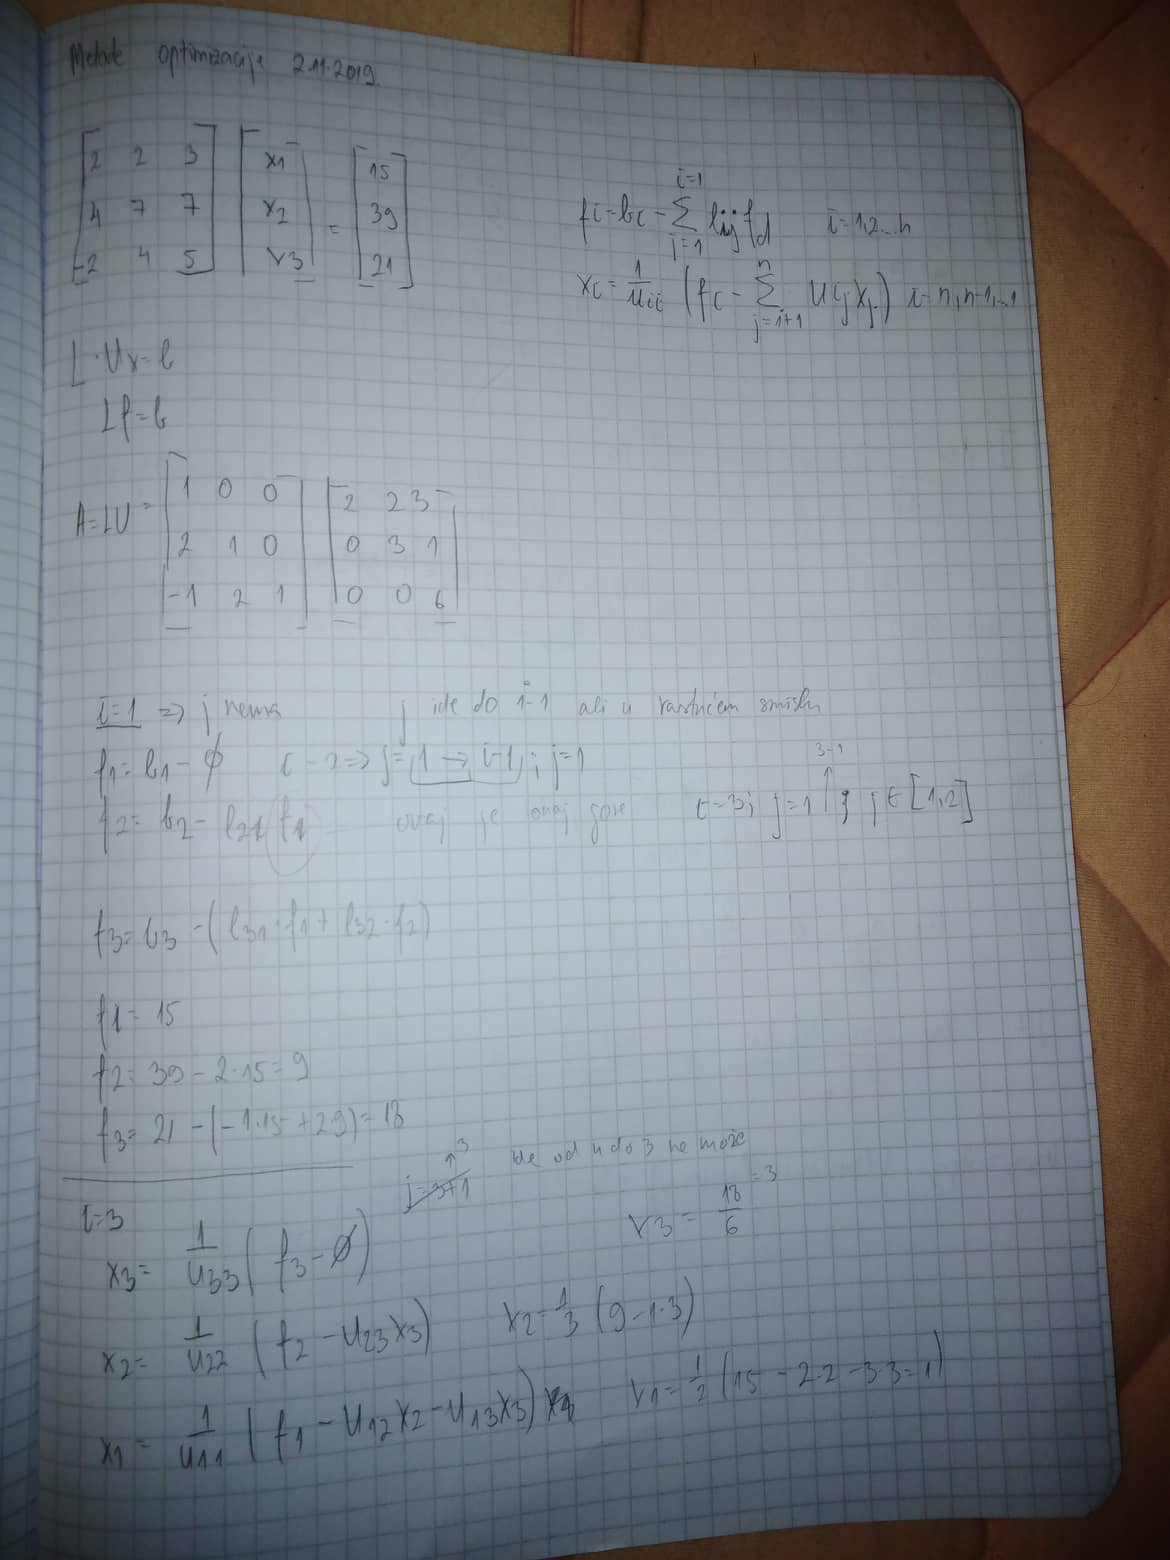 Metode optimizacije 2.11.2019
[2 2 3; 4 7 7; -2 4 5] [x1; x2; x3] = [15; 39; 21]
fi = bi - Σ_{j=1}^{i-1} lij fj i=1,2...n
xi = 1/uii (fi - Σ_{j=i+1}^{n} uij xj) i=n,n-1,..1
L·Ux=b
Lf=b
A=LU= [1 0 0; 2 1 0; -1 2 1] [2 2 3; 0 3 1; 0 0 6]
i=1 => j nema j ide do i-1 ali u rastućem smislu
f1=b1-ϕ i-2=> j=1→i-1; j=1
3-1
f2= b2- l21 f1 ovaj je onaj gore i-3; j=1↑; j∈[1,2]
f3= b3 -(l31·f1+l32·f2)
f1= 15
f2= 39-2·15=9
f3= 21-(-1·15+2 9)=18
i=3 j=3+1 ↑3 ide od 4 do 3 ne može
x3= 1/u33 (f3-ϕ) x3= 18/6 =3
x2= 1/u22 (f2-u23x3) x2=1/3 (9-1·3)
x1= 1/u11 (f1-u12x2-u13x3) x1=1/2 (15-2·2-3·3=1)